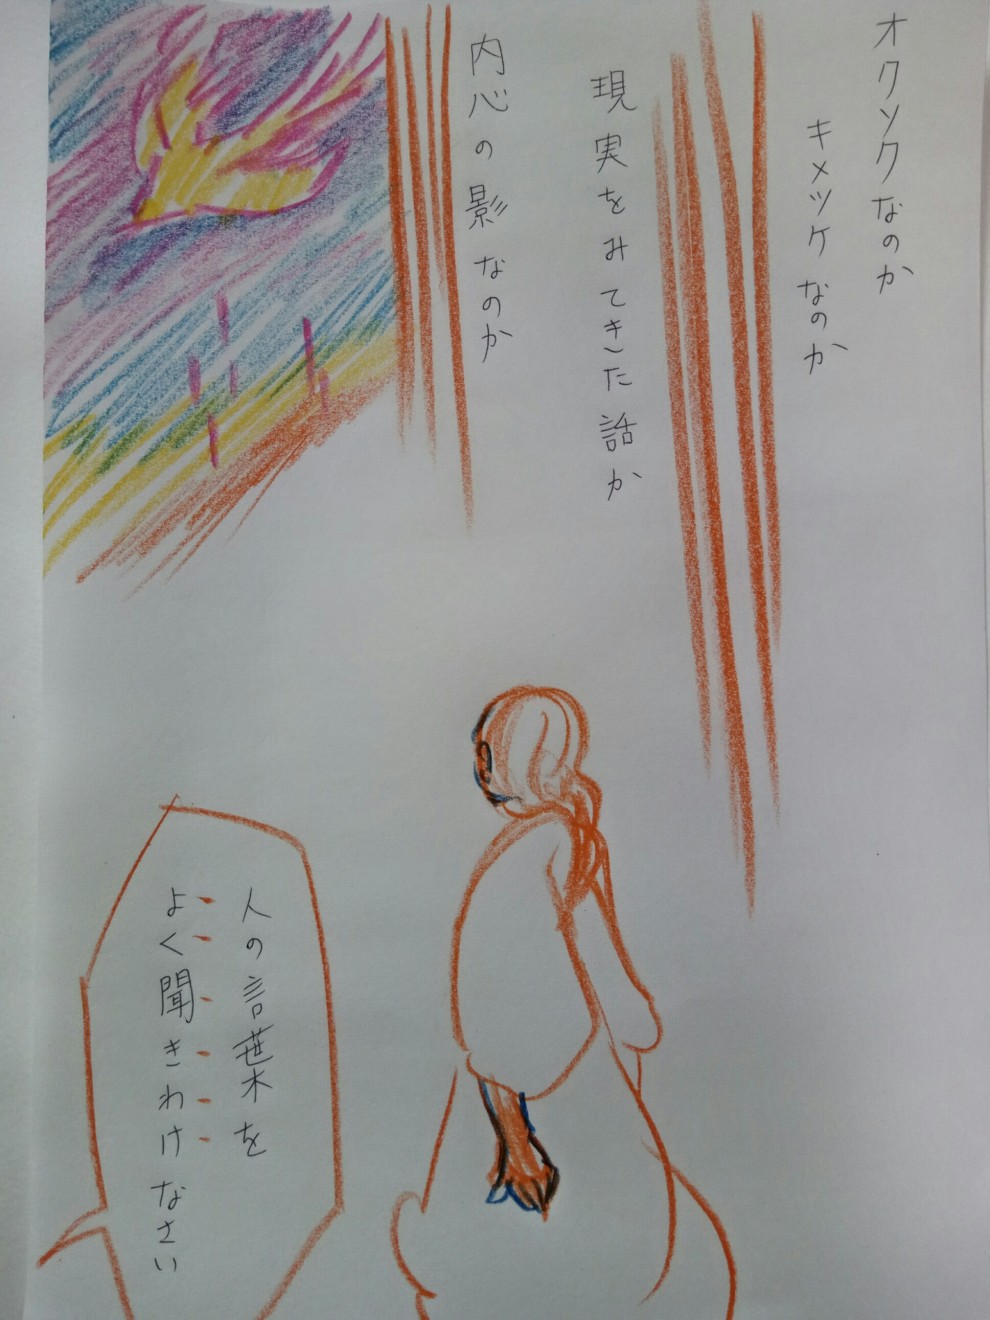 オクソクなのか
キメツケなのか
現実をみてきた話か
内心の影なのか
人の言葉を
よく聞きわけなさい